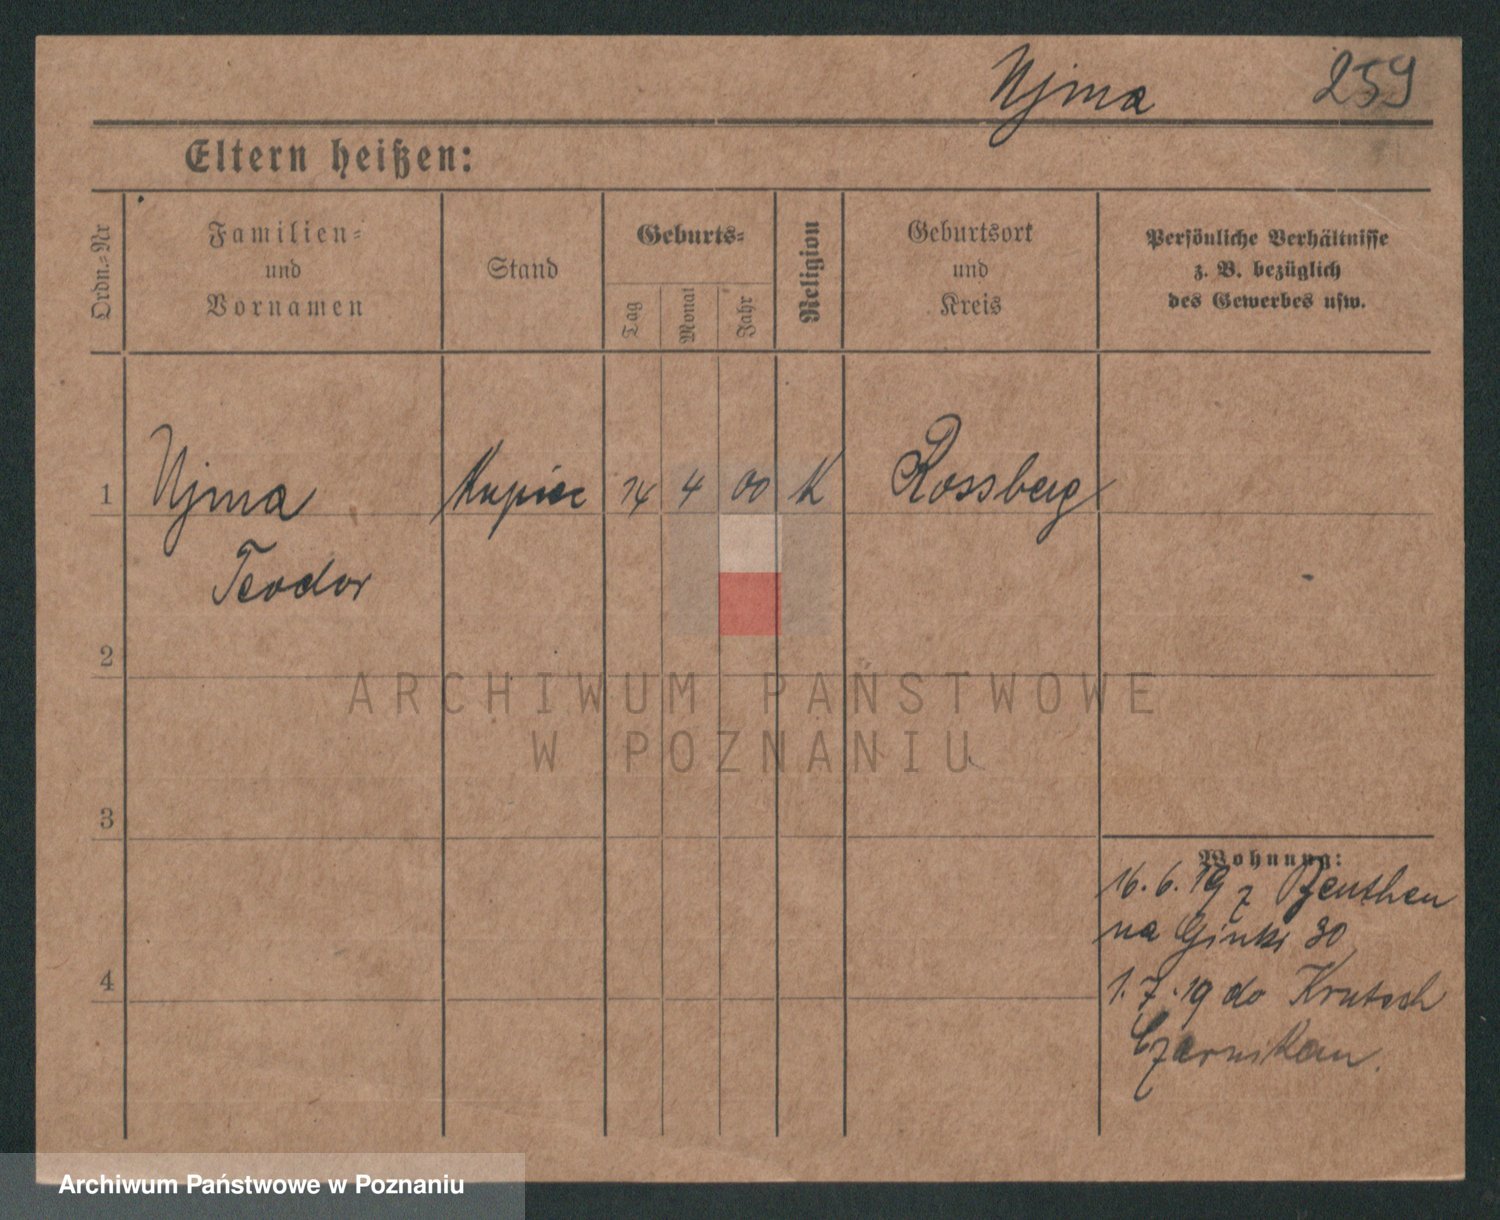 Ujma 259
Eltern heißen:
Ordn.-Nr
Familien-
und
Vornamen
Stand
Geburts-
Tag
Monat
Jahr
Religion
Geburtsort
und
Kreis
Persönliche Verhältnisse
z. B. bezüglich
des Gewerbes usw.
1 Ujma Kupiec 14 4 00 K Rossberg
Teodor
2
3
4
Wohnung:
16. 6. 19 z Beuthen
na 30
1. 7. 19 do Krutsch
Czarnikau.
ARCHIWUM PAŃSTWOWE
W POZNANIU
Archiwum Państwowe w Poznaniu